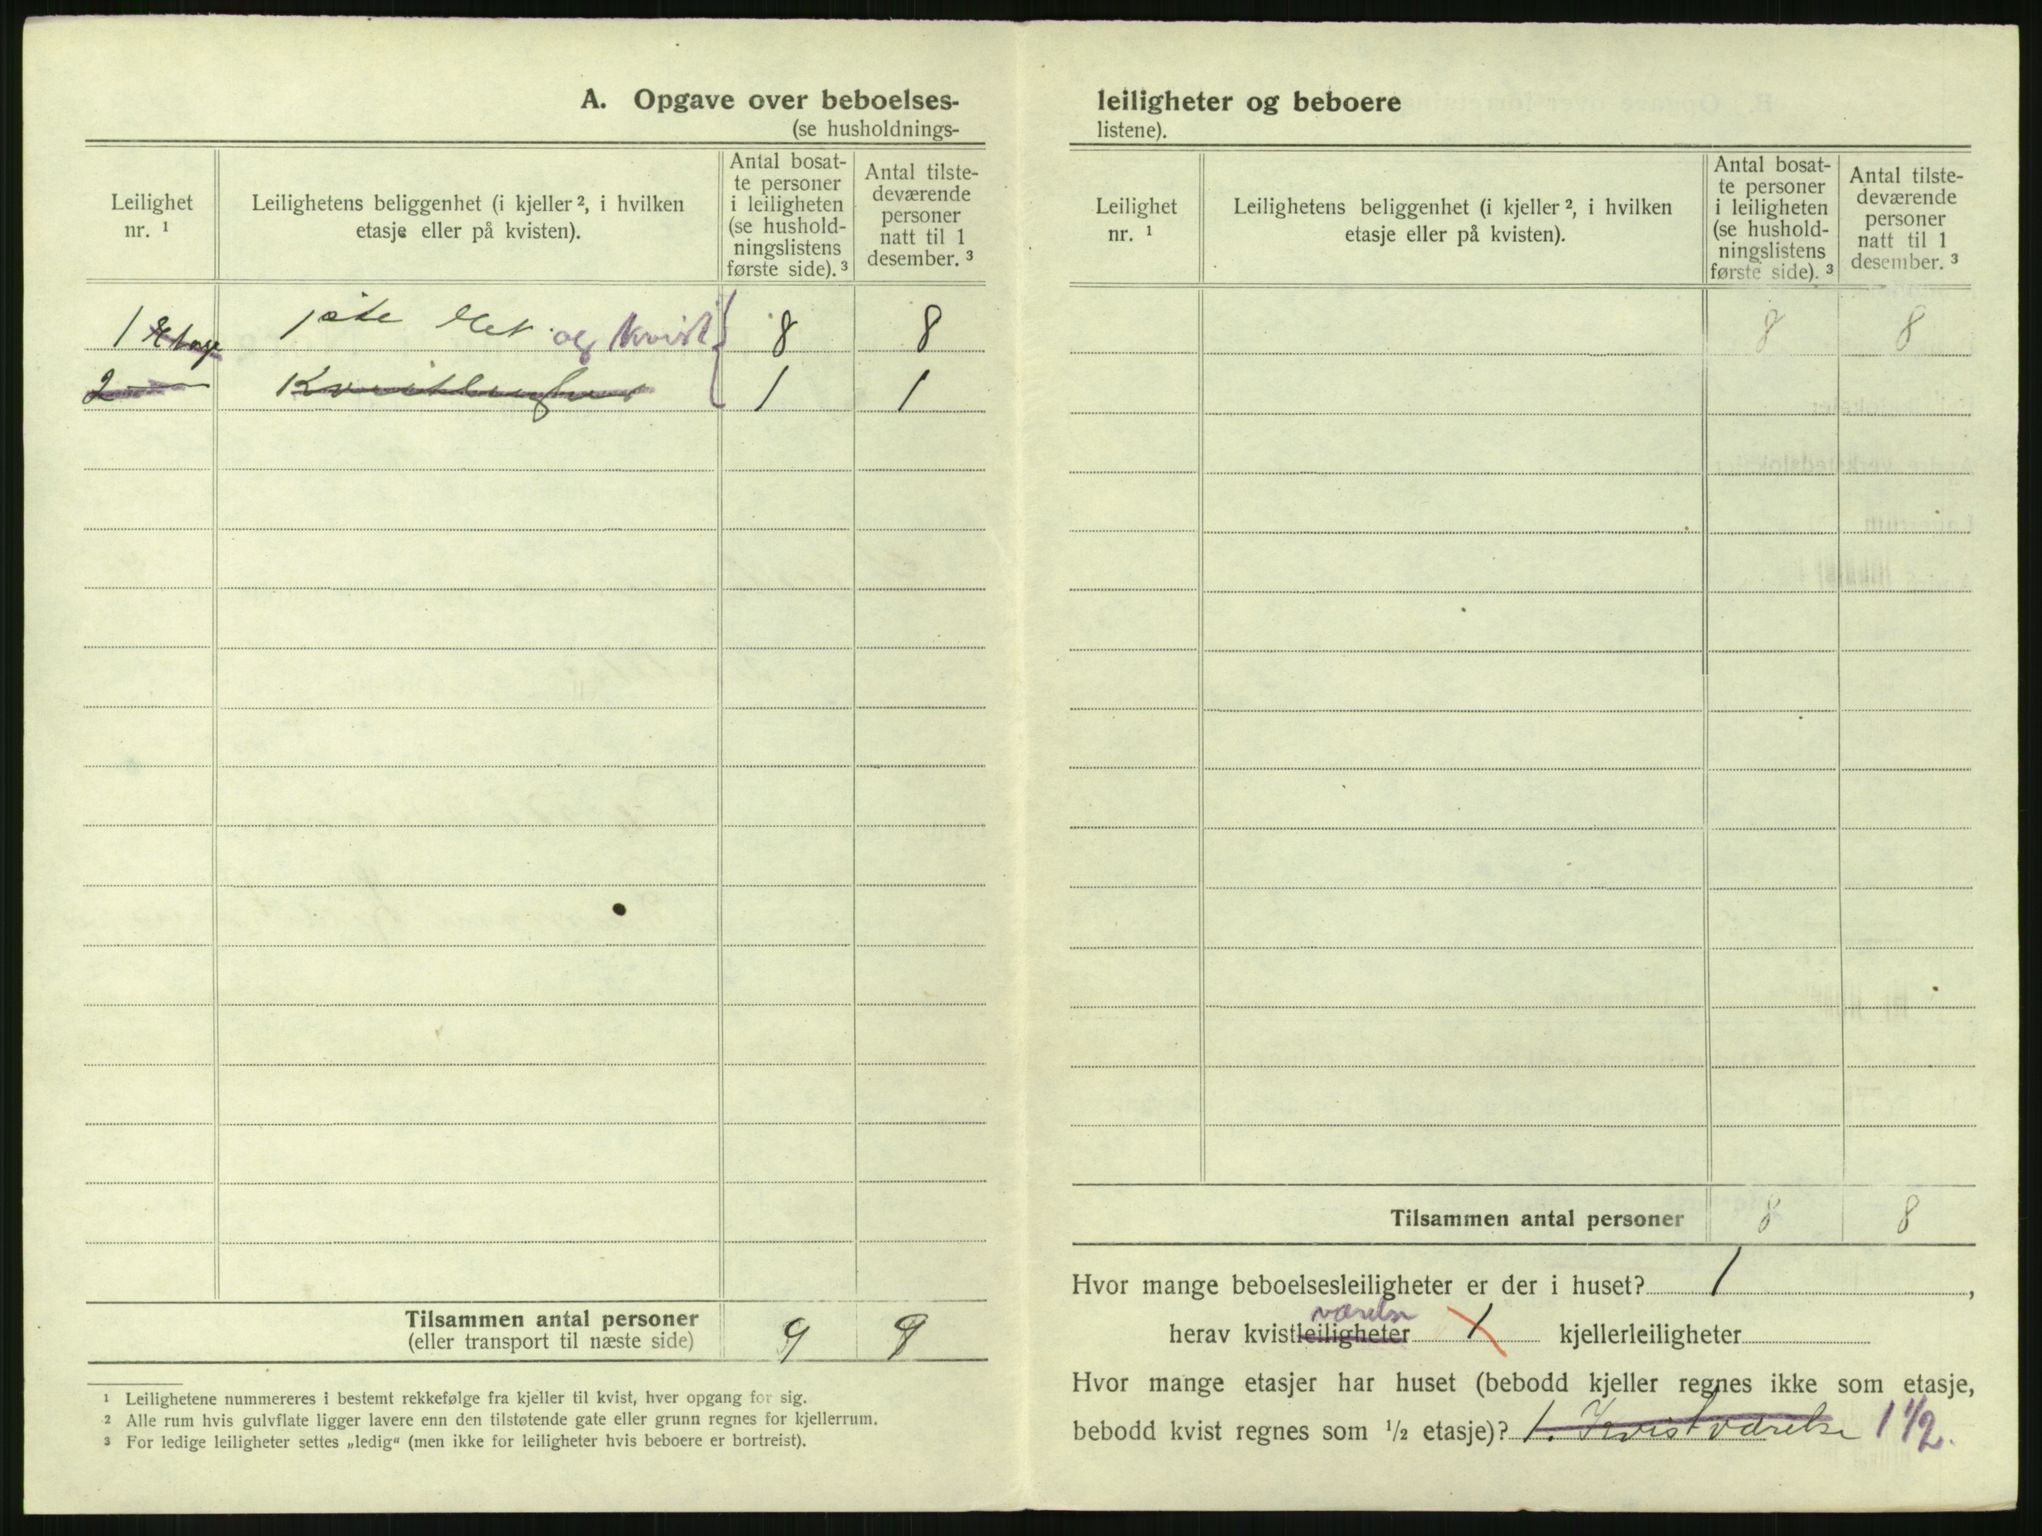 A. Opgave over beboelses-
(se husholdnings-
Leilighet
nr. 1
Leilighetens beliggenhet (i kjeller 2, i hvilken
etasje eller på kvisten).
Antal bosat-
te personer
i leiligheten
(se hushold-
ningslistens
første side). 3
Antal tilste-
deværende
personer
natt til 1
desember. 3
1 Etage 1ste Et. og kvist 8 8
2 1 1
Tilsammen antal personer 9 9
(eller transport til næste side)
1 Leilighetene nummereres i bestemt rekkefølge fra kjeller til kvist, hver opgang for sig.
2 Alle rum hvis gulvflate ligger lavere enn den tilstøtende gate eller grunn regnes for kjellerrum.
3 For ledige leiligheter settes „ledig“ (men ikke for leiligheter hvis beboere er bortreist).
leiligheter og beboere
listene).
Leilighet
nr. 1
Leilighetens beliggenhet (i kjeller 2, i hvilken
etasje eller på kvisten).
Antal bosat-
te personer
i leiligheten
(se hushold-
ningslistens
første side). 3
Antal tilste-
deværende
personer
natt til 1
desember. 3
8 8
Tilsammen antal personer 8 8
Hvor mange beboelsesleiligheter er der i huset? 1,
værelse
herav kvistleiligheter 1 kjellerleiligheter
Hvor mange etasjer har huset (bebodd kjeller regnes ikke som etasje,
bebodd kvist regnes som 1/2 etasje)? 1. Kvistværelse 1 1/2.